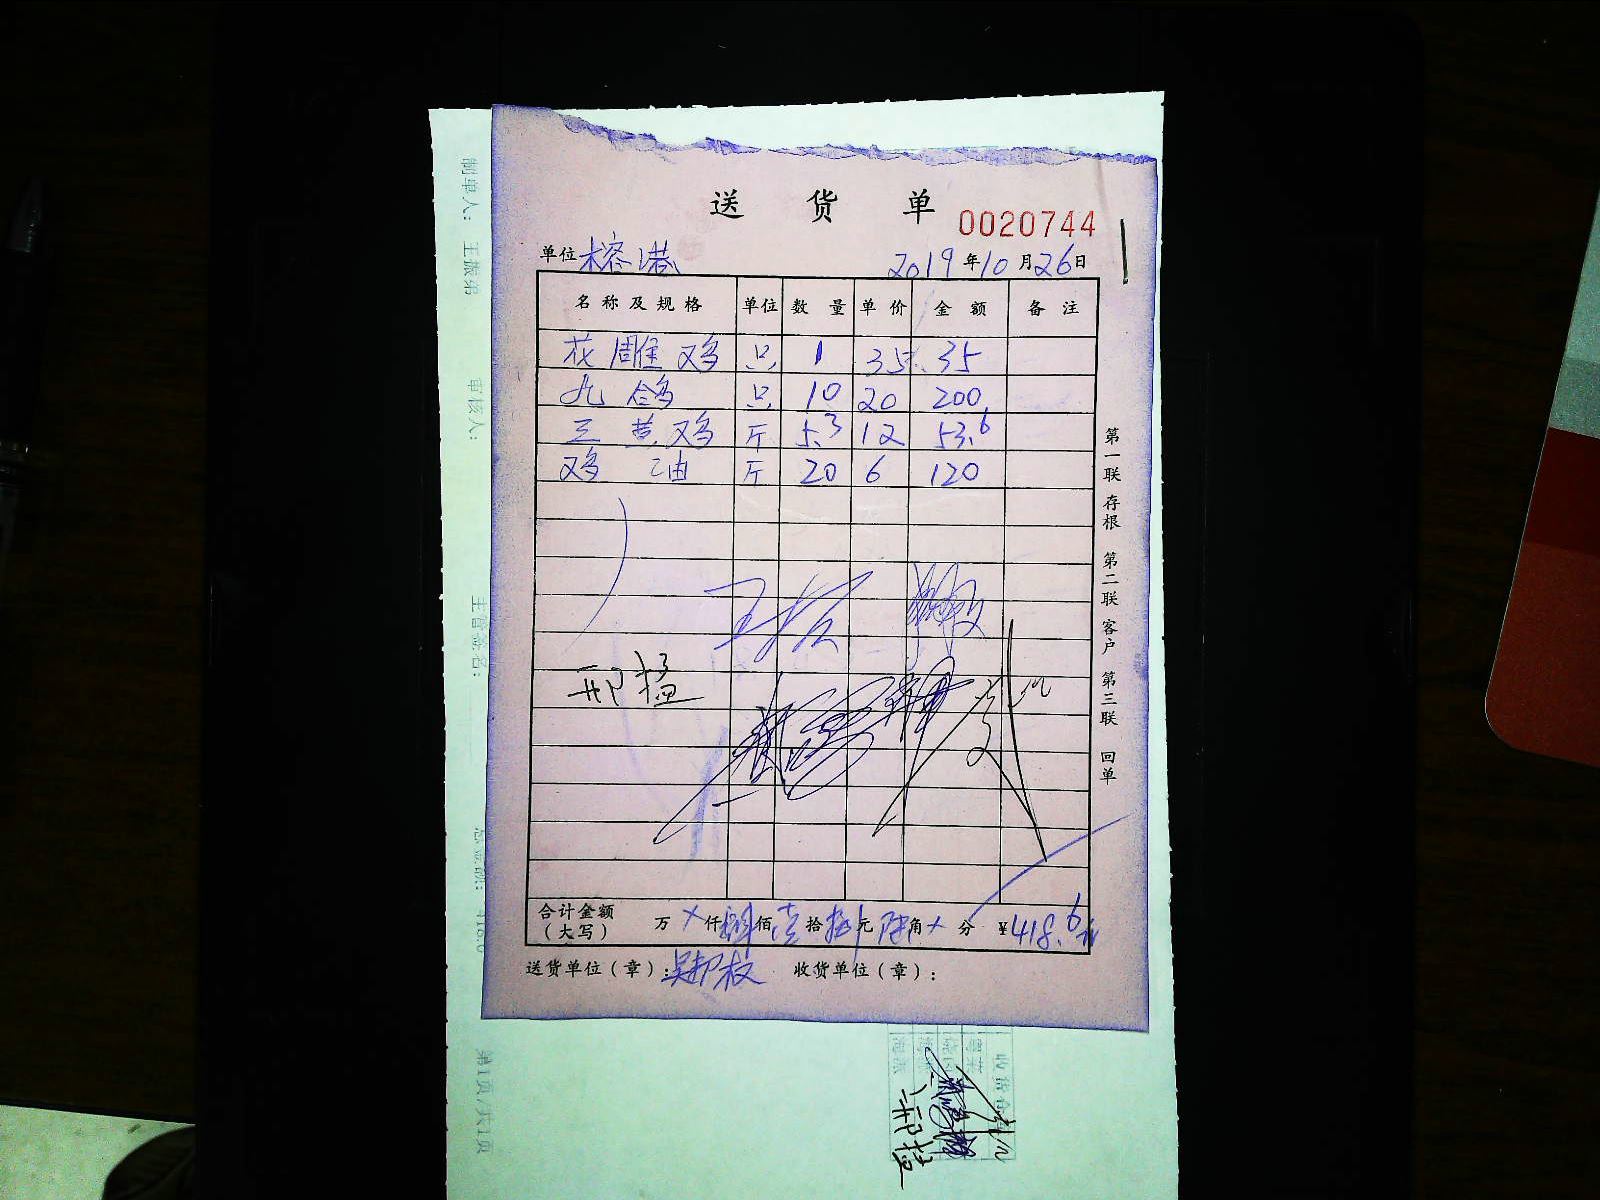 送 货 单
0020744
单位 榕港 2019 年 10 月 26 日
名称及规格 单位 数量 单价 金额 备注
花雕鸡 只 1 35 35
九鸽 只 10 20 200
三黄鸡 斤 5.3 12 53.6
鸡油 斤 20 6 120
邢猛
合计金额（大写） 万 × 仟 肆 佰 壹 拾 捌 元 陆 角 × 分 ¥418.6元
送货单位（章）：吴邦权 收货单位（章）：
第一联 存根 第二联 客户 第三联 回单
制单人： 王振弟
审核人：
主管签名：
总金额： 418.6
第1页/共1页